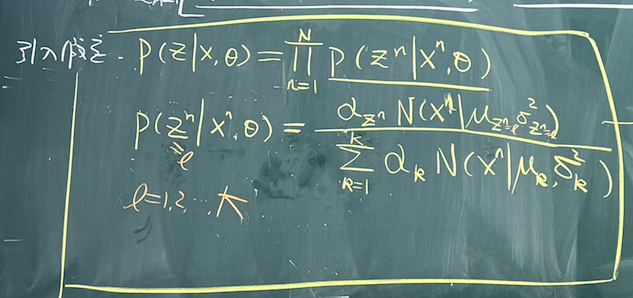 引入假设. P(z|x,θ) = ∏_{n=1}^{N} P(z^n|x^n,θ)
P(z^n|x^n,θ) = α_{z^n} N(x^n|μ_{z^n=ℓ}, σ²_{z^n=ℓ}) / ∑_{k=1}^{K} α_k N(x^n|μ_k, σ_k²)
=ℓ
ℓ=1,2,...K